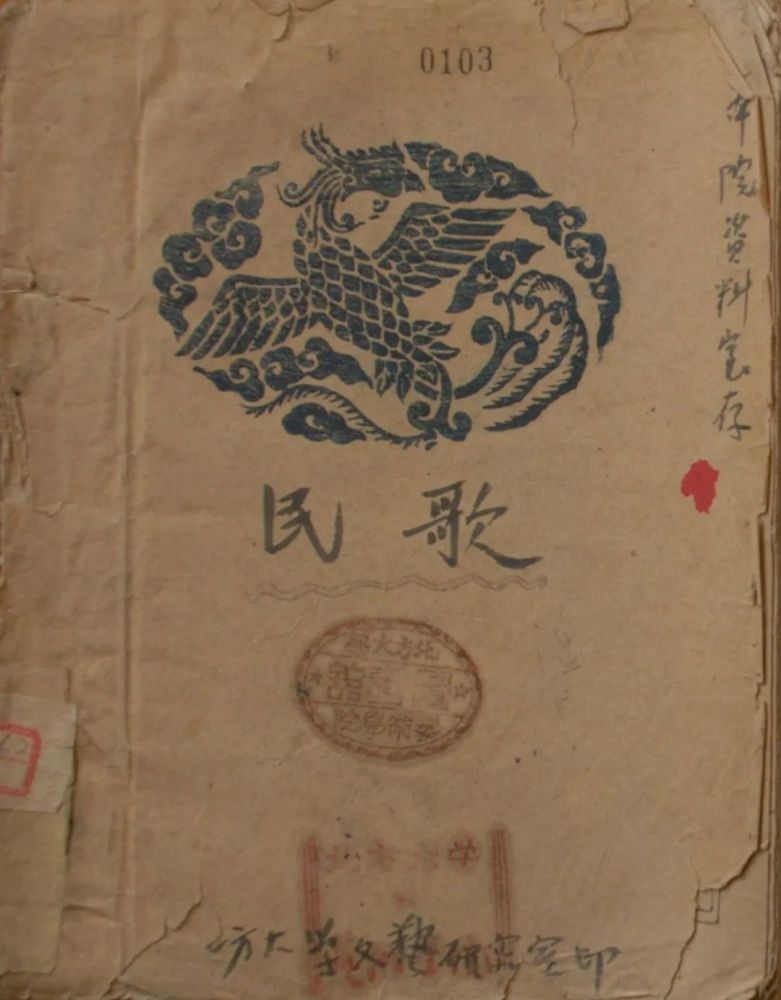 0103
本院資料室存
民歌
北方大學
圖書館
藝術學院
北方大学
方大学文藝研究室印